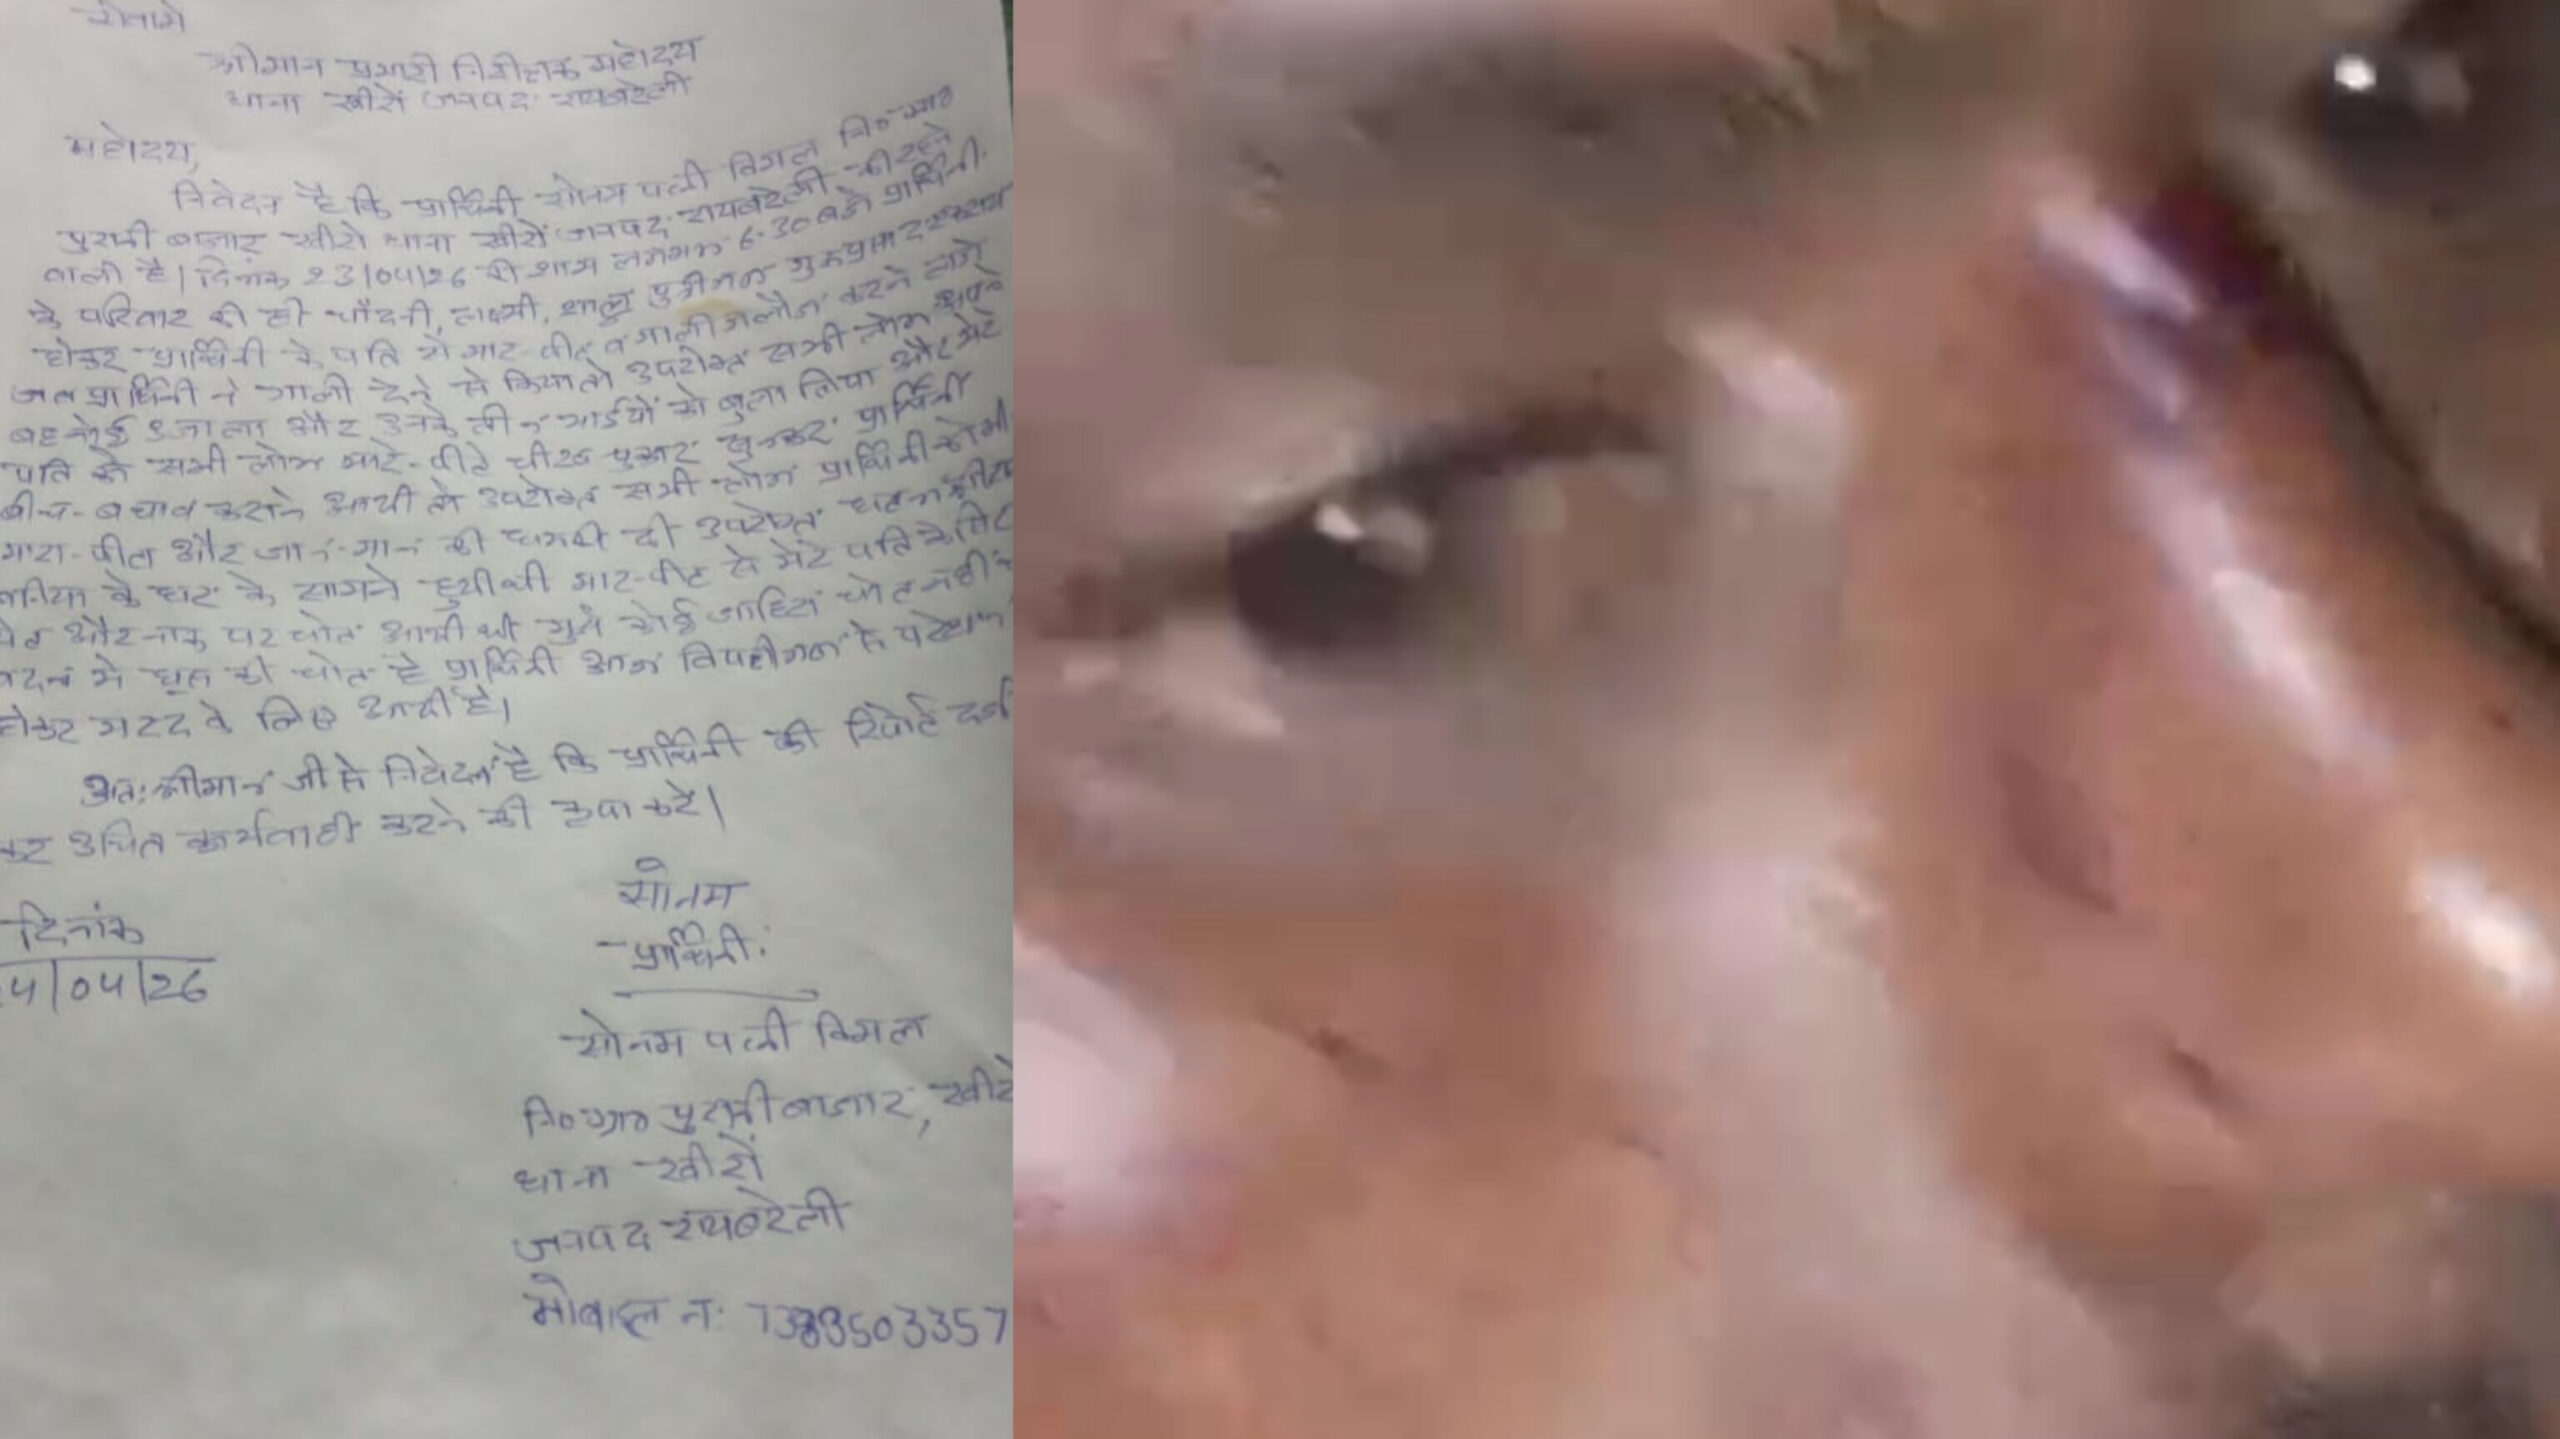 सेवामे
श्रीमान प्रभारी निरीक्षक महोदय
थाना खीरों जनपद रायबरेली
महोदय,
निवेदन है कि प्रार्थिनी सोनम पत्नी विमल नि० ग्राम
पुरानी बाजार खीरो थाना खीरों जनपद रायबरेली की रहने
वाली है। दिनांक 23/04/26 की शाम लगभग 6.30 बजे प्रार्थिनी
के परिवार की ही चाँदनी, लक्ष्मी, शालू पुत्रीगण गुरुप्रसाद
होकर प्रार्थिनी के पति से मार-पीट व गाली गलौज करने लगे
जब प्रार्थिनी ने गाली देने से किया तो उपरोक्त सभी लोग अपने
बहनोई और उनके तीन भाईयों को बुला लिया और मेरे
पति को सभी लोग मारे-पीटे चीख पुकार सुनकर प्रार्थिनी
बीच-बचाव कराने आयी तो उपरोक्त सभी लोग प्रार्थिनी को भी
मारा-पीटा और जान-मान की धमकी दी उपरोक्त घटना
के घर के सामने हुयी थी मार-पीट से मेरे पति के सिर
और नाक पर चोट आयी थी मुझे कोई जाहिरा चोट नहीं
बदन में घूस की चोट है प्रार्थिनी आज विपक्षीगण से परेशान
होकर मदद के लिए आयी है।
अतः श्रीमान जी से निवेदन है कि प्रार्थिनी की रिपोर्ट दर्ज
कर उचित कार्यवाही करने की कृपा करें।
सोनम
प्रार्थिनी.
दिनांक
24/04/26
सोनम पत्नी विमल
नि० ग्रा० पुरानी बाजार, खीरो
थाना खीरों
जनपद रायबरेली
मोबाइल न: